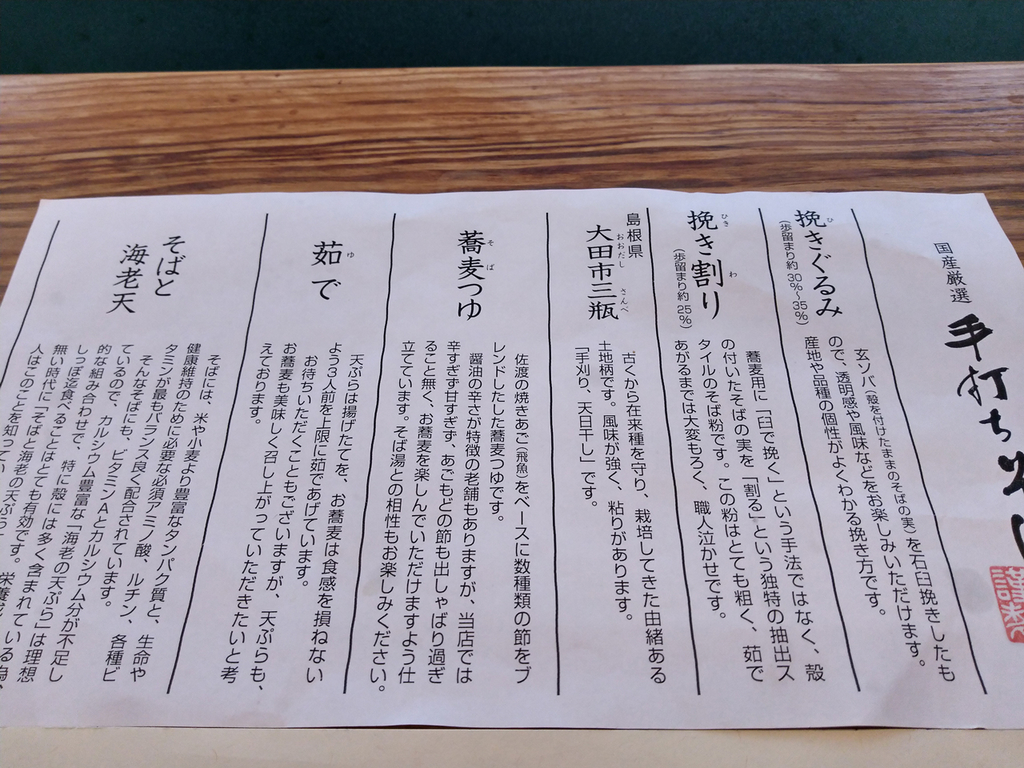 国産厳選
手打ちそば
挽きぐるみ
(歩留まり約 30%~35%)
玄ソバ(殻を付けたままのそばの実)を石臼挽きしたも
ので、透明感や風味などをお楽しみいただけます。
産地や品種の個性がよくわかる挽き方です。
挽き割り
(歩留まり約 25%)
蕎麦用に「臼で挽く」という手法ではなく、殻
の付いたそばの実を「割る」という独特の抽出ス
タイルのそば粉です。この粉はとても粗く、茹で
あがるまでは大変もろく、職人泣かせです。
島根県
大田市三瓶
古くから在来種を守り、栽培してきた由緒ある
土地柄です。風味が強く、粘りがあります。
「手刈り、天日干し」です。
蕎麦つゆ
佐渡の焼きあご(飛魚)をベースに数種類の節をブ
レンドしたした蕎麦つゆです。
醤油の辛さが特徴の老舗もありますが、当店では
辛すぎず甘すぎず、あごもどの節も出しゃばり過ぎ
ること無く、お蕎麦を楽しんでいただけますよう仕
立てています。そば湯との相性もお楽しみください。
茹で
天ぷらは揚げたてを、お蕎麦は食感を損ねない
よう3人前を上限に茹であげています。
お待ちいただくこともございますが、天ぷらも、
お蕎麦も美味しく召し上がっていただきたいと考
えております。
そばと
海老天
そばには、米や小麦より豊富なタンパク質と、生命や
健康維持のために必要な必須アミノ酸、ルチン、各種ビ
タミンが最もバランス良く配合されています。
そんなそばにも、ビタミンAとカルシウム分が不足し
ているので、カルシウム豊富な「海老の天ぷら」は理想
的な組み合わせで、特に殻には多く含まれている為、
しっぽ迄食べることはとても有効です。栄養
無い時代に「そばと海老の天ぷら
人はこのことを知ってい